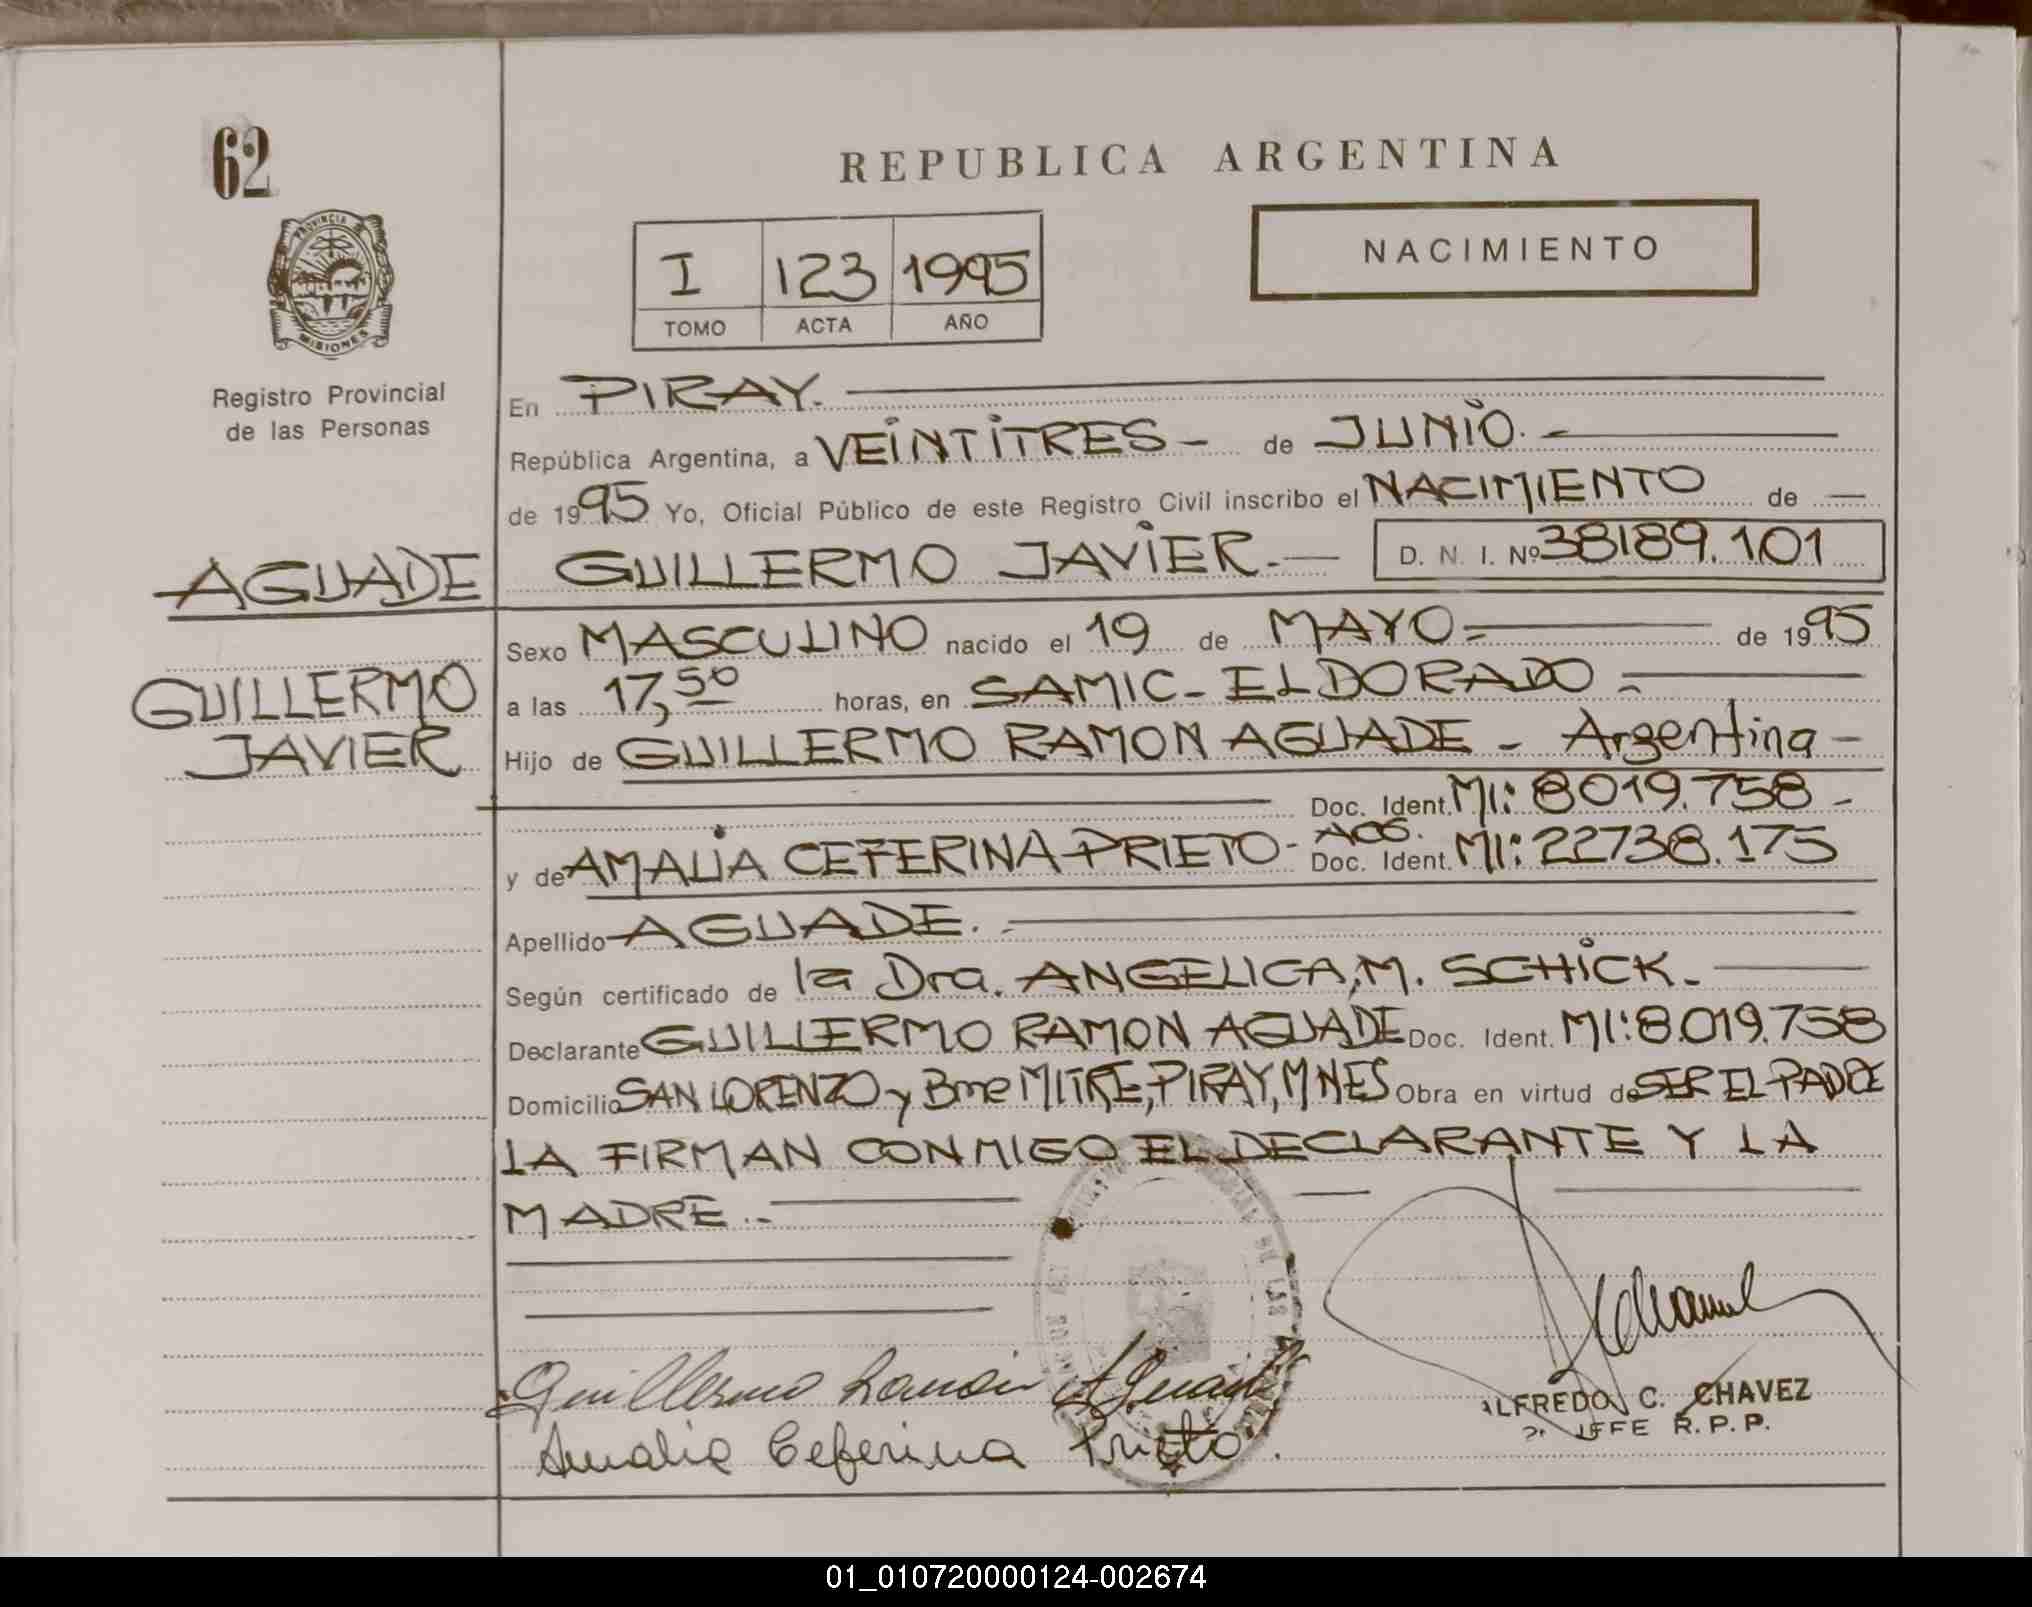 62
PROVINCIA DE
MISIONES
Registro Provincial
de las Personas
AGUADE
GUILLERMO
JAVIER
REPUBLICA ARGENTINA
NACIMIENTO
I 123 1995
TOMO ACTA AÑO
En PIRAY.
República Argentina, a VEINTITRES - de JUNIO.-
de 1995 Yo, Oficial Público de este Registro Civil inscribo el NACIMIENTO de
GUILLERMO JAVIER.- D. N. I. Nº 38189.101
Sexo MASCULINO nacido el 19 de MAYO de 1995
a las 17,50 horas, en SAMIC - ELDORADO
Hijo de GUILLERMO RAMON AGUADE - Argentina -
Doc. Ident. MI: 8019.758 -
y de AMALIA CEFERINA PRIETO - Arg. Doc. Ident. MI: 22738.175
Apellido AGUADE.
Según certificado de la Dra. ANGELICA, M. SCHICK.
Declarante GUILLERMO RAMON AGUADE Doc. Ident. MI: 8.019.758
Domicilio SAN LORENZO y Bme MITRE, PIRAY, MNES Obra en virtud de SER EL PADRE
LA FIRMAN CONMIGO EL DECLARANTE Y LA
MADRE.-
Guillermo Ramon Aguade
Amalia Ceferina Prieto.
ALFREDO C. CHAVEZ
JEFE R.P.P.
01_010720000124-002674